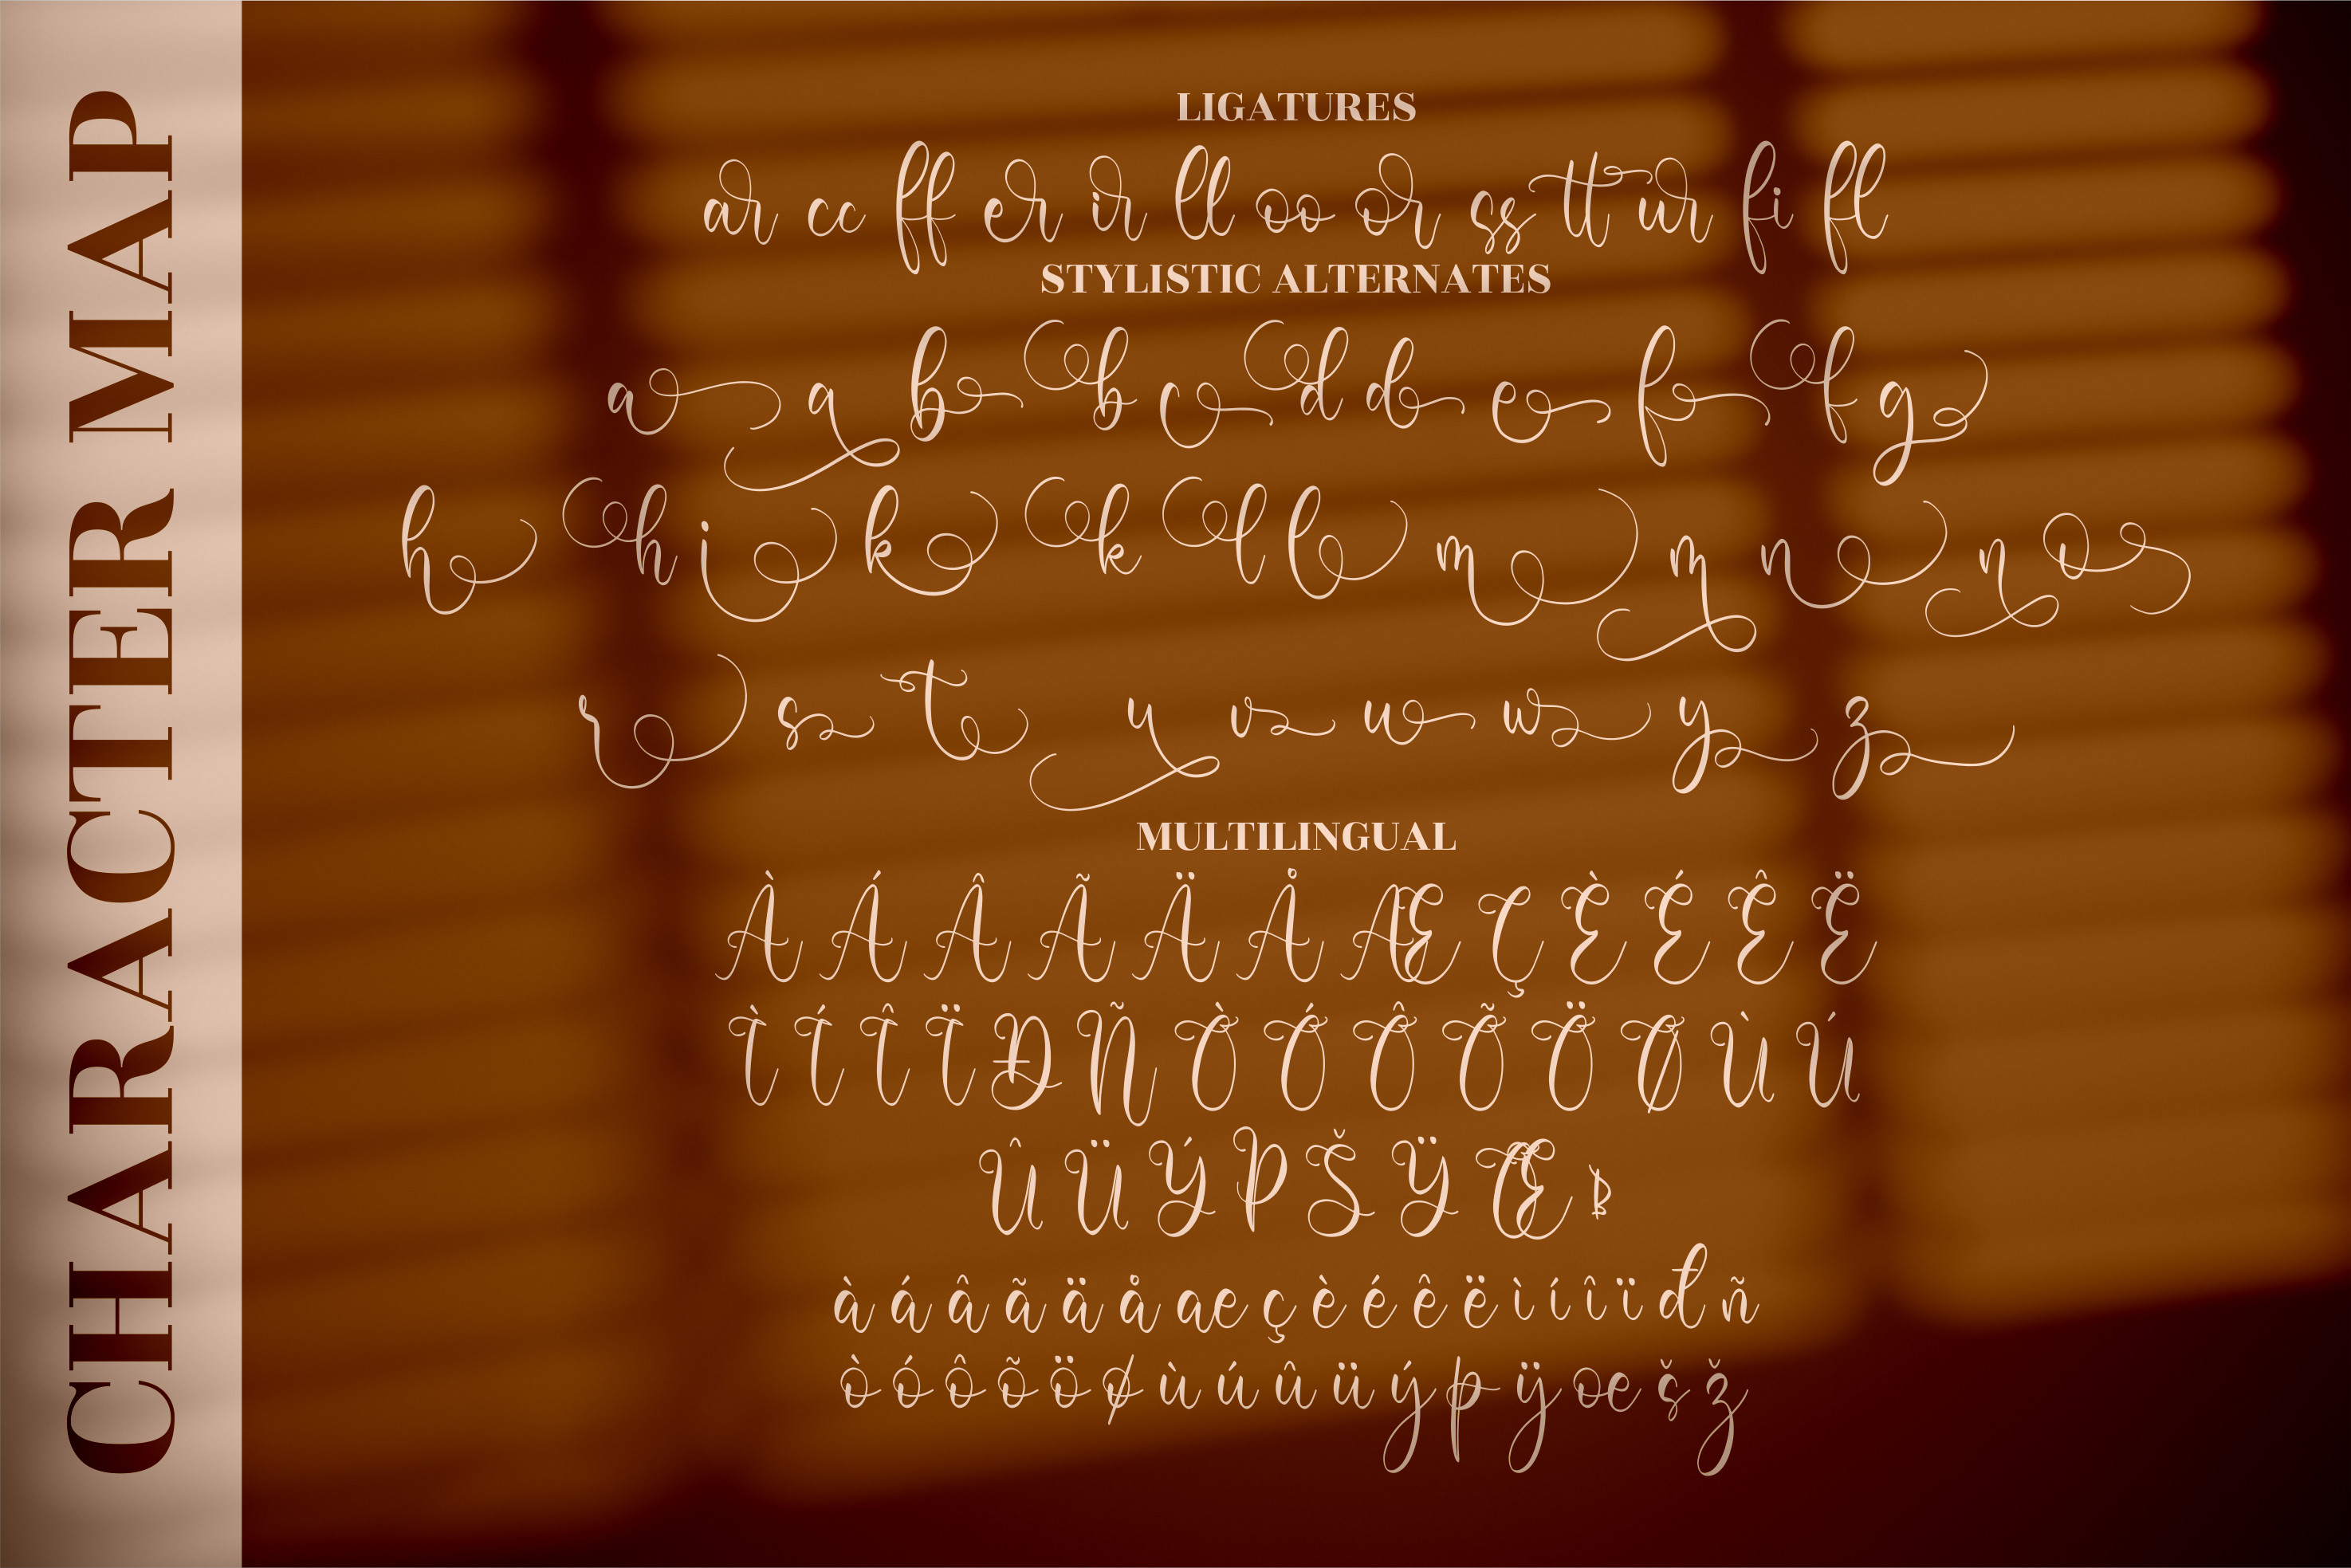 CHARACTER MAP
LIGATURES
ar cc ff er ir ll oo or ss tt ur fi fl
STYLISTIC ALTERNATES
a a b b c d d e f f g
h h i k k l l m m n n o
r s t u v u w y z
MULTILINGUAL
À Á Â Ã Ä Å Æ Ç È É Ê Ë
Ì Í Î Ï Ð Ñ Ò Ó Ô Õ Ö Ø Ù Ú
Û Ü Ý Þ Š Ÿ Œ
à á â ã ä å æ ç è é ê ë ì í î ï đ ñ
ò ó ô õ ö ø ù ú û ü ý þ ÿ œ š ž